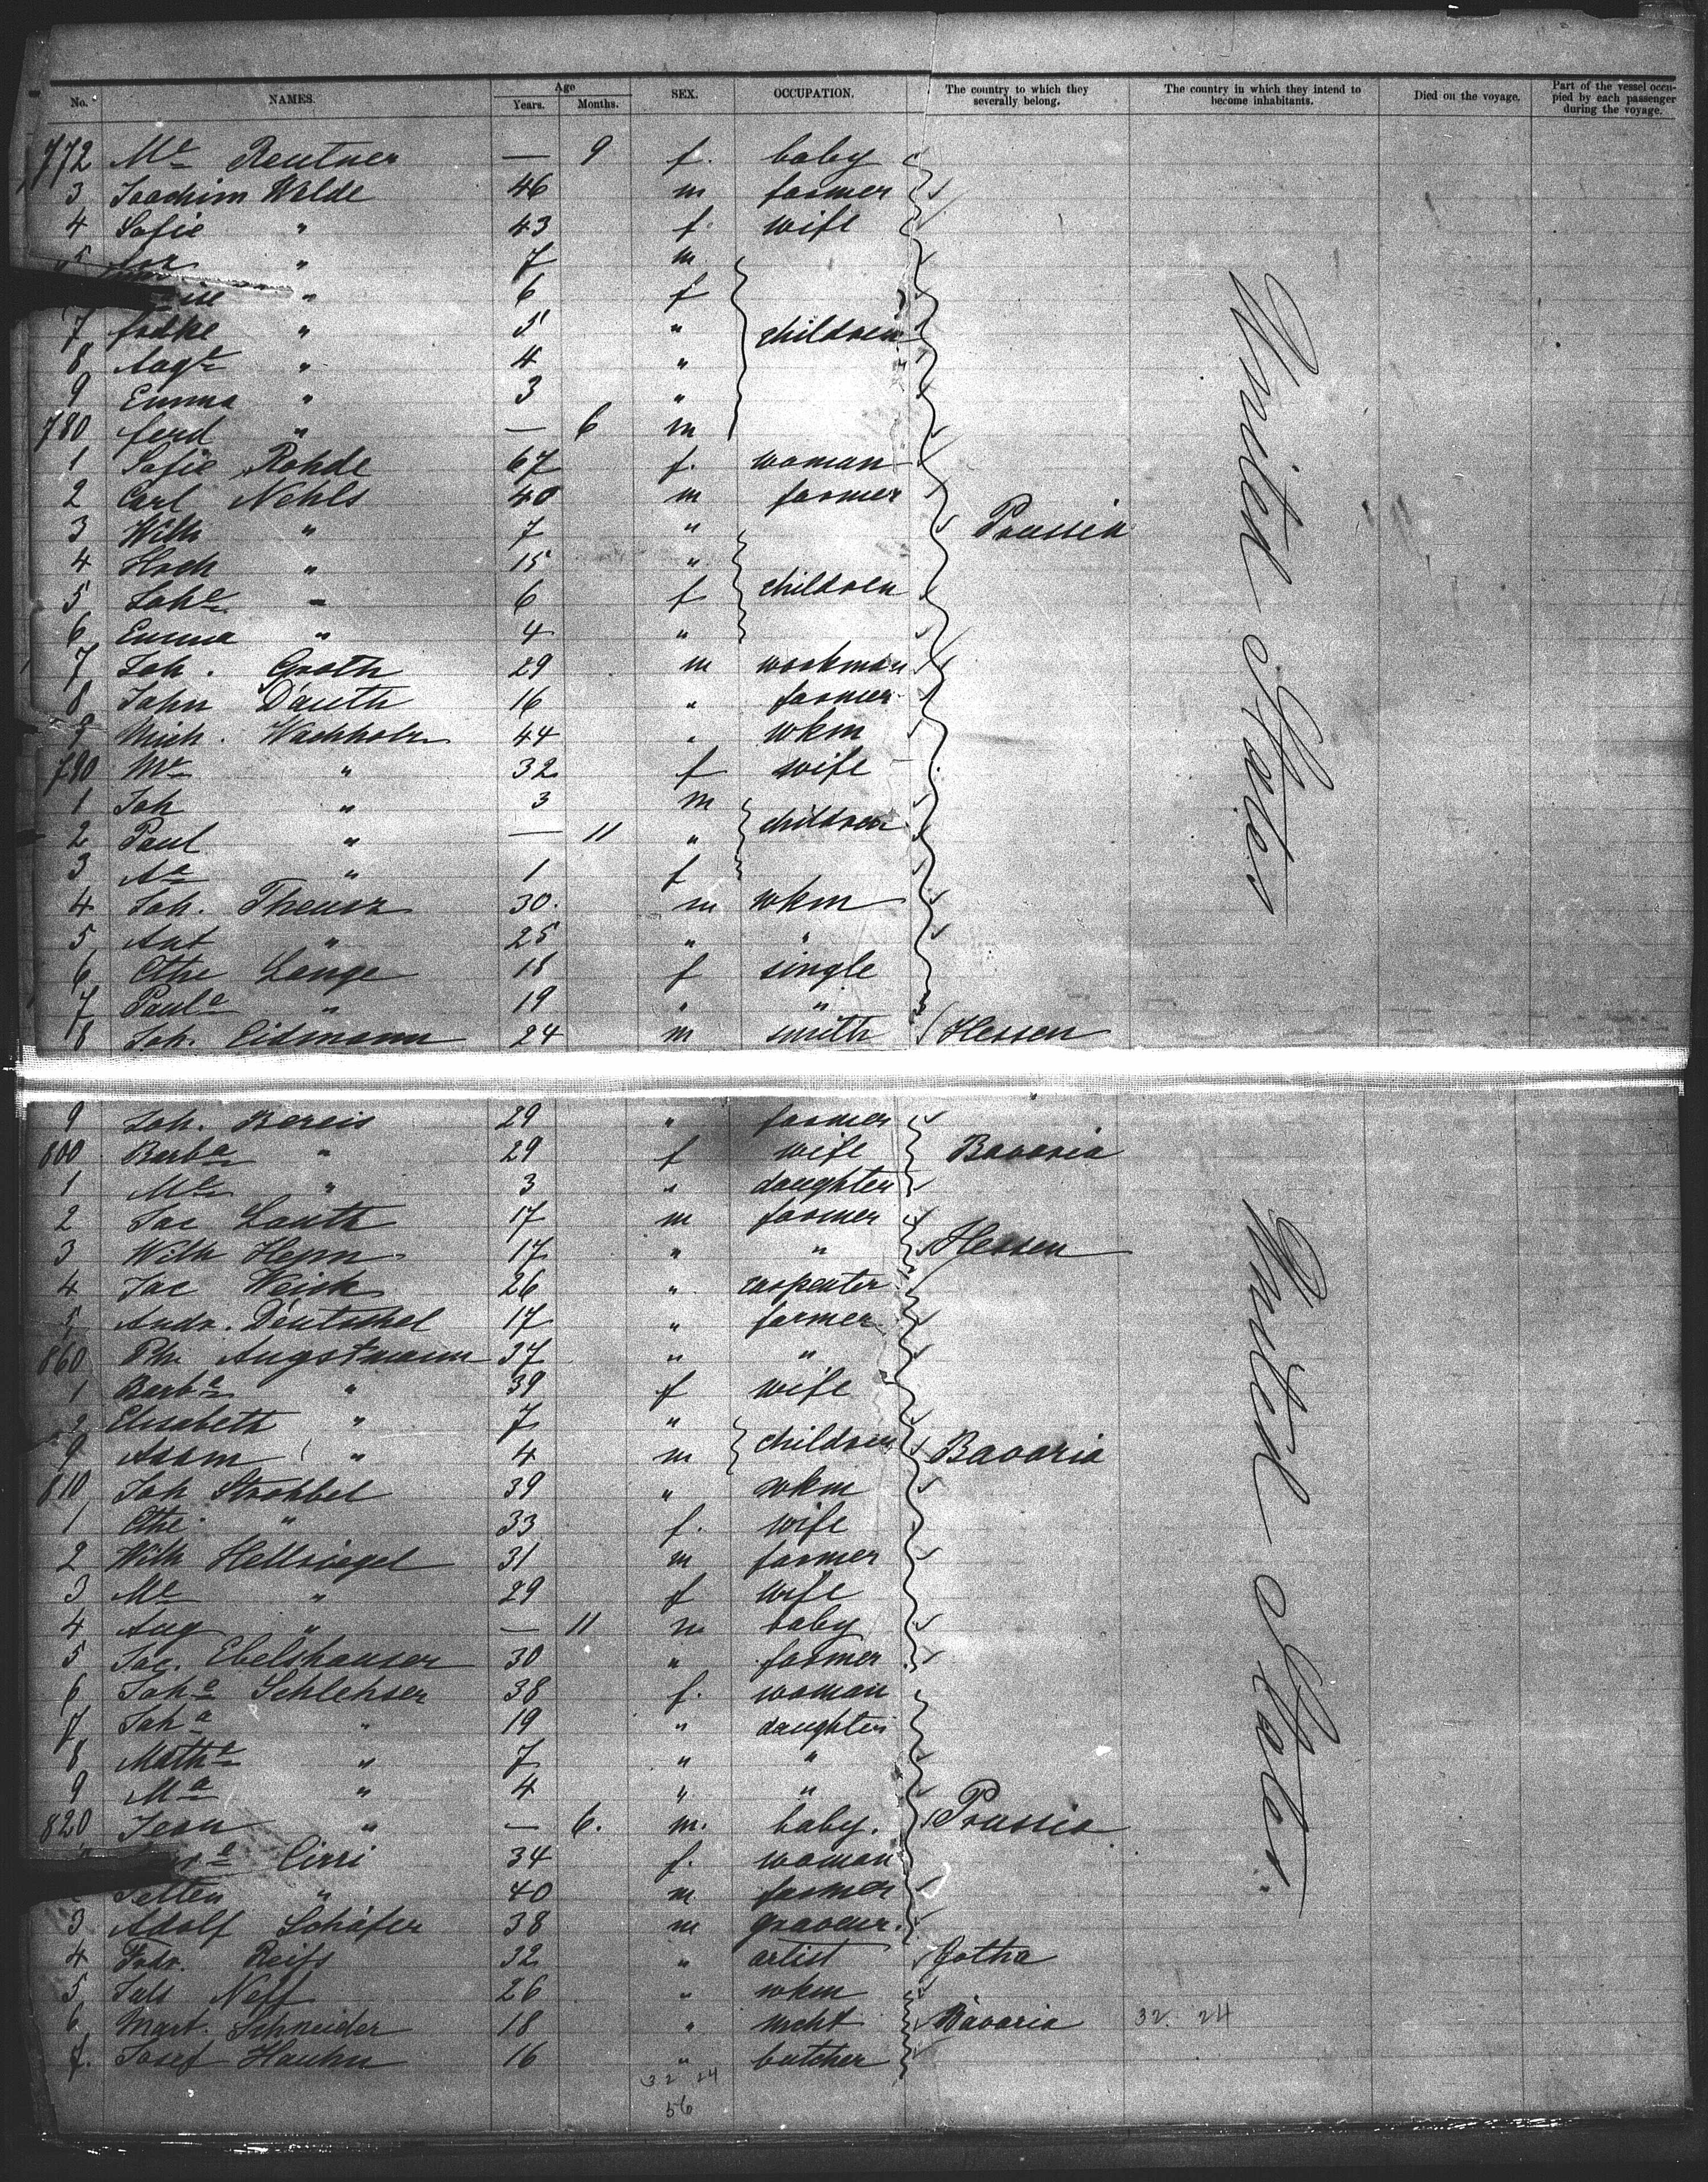 No. NAMES. Age Years. Months. SEX. OCCUPATION. The country to which they severally belong. The country in which they intend to become inhabitants. Died on the voyage. Part of the vessel occupied by each passenger during the voyage.
772 Me Reutner — 9 f. baby
3 Joachim Wilde 46 m farmer
4 Sofie " 43 f wife
5 " 7 m
" 6 f
7 " 5 " children
8 Auge " 4 "
9 Emma " 3 "
780 ferd " — 6 m
1 Sofie Rohde 67 f. woman
2 Carl Nehls 40 m farmer
3 Wilh " 7 " Prussia
4 " 15 "
5 Johe " 6 f children
6 Emma " 4 "
7 Joh. Groth 29 m workman
8 John Dauth 16 " farmer
9 Mich. Wachholz 44 " wkm
790 Me " 32 f wife
1 Joh " 3 m
2 Paul " — 11 " children
3 Aa " 1 f
4 Joh. Theusz 30. m wkm
5 Ant " 25 " "
6 Cthe Lange 18 f single
7 Paula " 19 " "
8 Joh. Eidmann 24 m smith Hessen
United States
9 Joh. Bereis 29 " farmer
800 Barba " 29 f wife Bavaria
1 Me " 3 " daughter
2 Jac Lauth 17 m farmer
3 Wilh Henn 17 " " Hessen
4 Jac Weick 26 " carpenter
5 Andr. Deutschel 17 " farmer
860 Ph. Augstmann 37 " "
1 Barba " 39 f wife
2 Elisabeth " 7 "
9 Adam " 4 m children Bavaria
810 Joh Strohbel 39 " wkm
1 Cthe " 33 f. wife
2 Wilh Hellriegel 31 m farmer
3 Me " 29 f wife
4 Aug " — 11 m baby
5 Jac. Ebelshauser 30 " farmer
6 Joha Schlehser 38 f. woman
7 Joha " 19 " daughter
8 Mathe " 7 " "
9 Ma " 4 " "
820 Jean " — 6. m. baby. Prussia
Cirri 34 f. woman
" 40 m farmer
3 Adolf Schäfer 38 m graveur.
4 Fedr. Reifs 32 " artist Gotha
5 Juls Neff 26 " wkm
6 Mart. Schneider 18 " mcht Bavaria 32. 24
7. Josef Hauhn 16 " butcher
32 24
56
United States